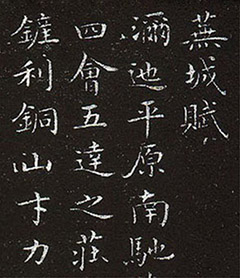 蕪城賦
濔迆平原南馳
四會五達之莊
鏟利銅山才力